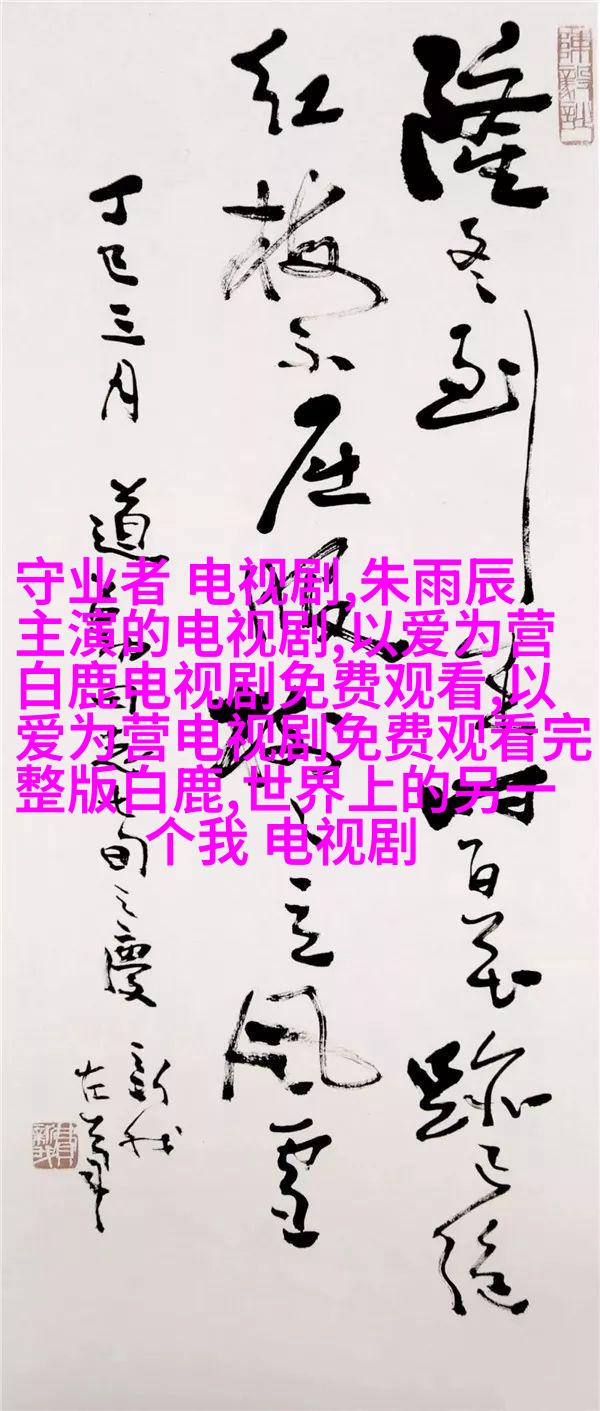 陳毅詩
隆冬到来时百花跡已絕
红梅不屈服树々立风雪
丁巳三月 道 七旬之慶 新我
左笔
守业者 电视剧,朱雨辰
主演的电视剧,以爱为营
白鹿电视剧免费观看,以
爱为营电视剧免费观看完
整版白鹿,世界上的另一
个我 电视剧